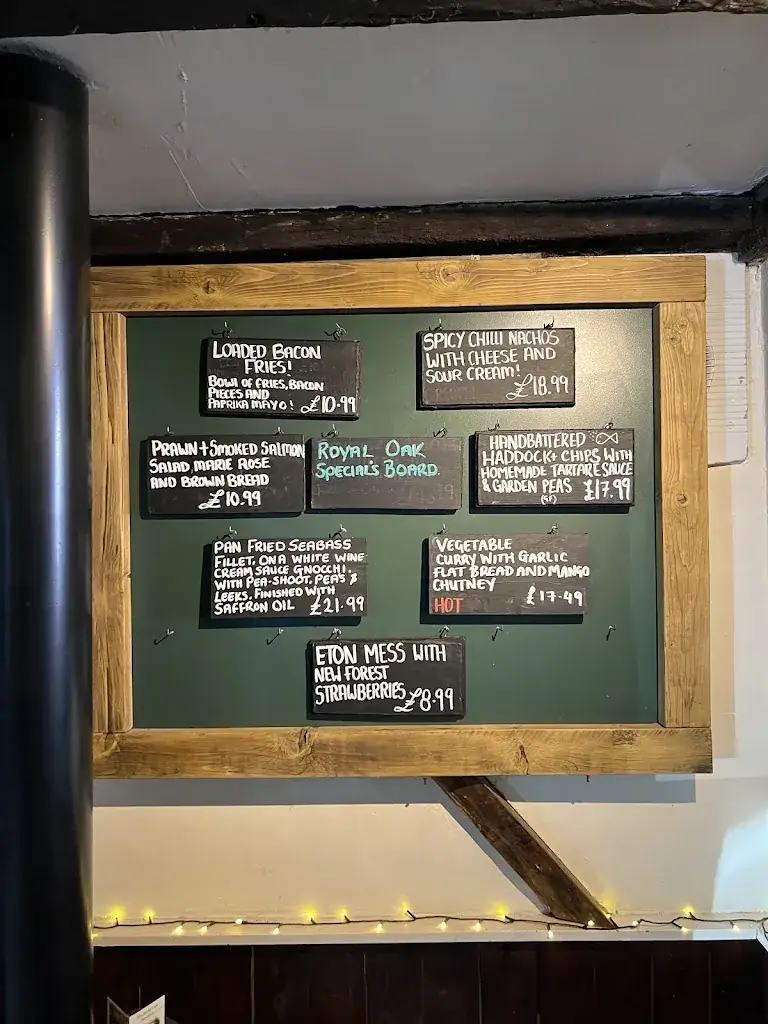 LOADED BACON
FRIES!
BOWL OF FRIES, BACON
PIECES AND
PAPRIKA MAYO! £10.99
SPICY CHILLI NACHOS
WITH CHEESE AND
SOUR CREAM!
£18.99
PRAWN + SMOKED SALMON
SALAD, MARIE ROSE
AND BROWN BREAD
£10.99
ROYAL OAK
SPECIAL'S BOARD
HANDBATTERED
HADDOCK + CHIPS WITH
HOMEMADE TARTARE SAUCE
& GARDEN PEAS £17.99
(SF)
PAN FRIED SEABASS
FILLET, ON A WHITE WINE
CREAM SAUCE GNOCCHI,
WITH PEA-SHOOT, PEAS &
LEEKS. FINISHED WITH
SAFFRON OIL £21.99
VEGETABLE
CURRY WITH GARLIC
FLAT BREAD AND MANGO
CHUTNEY
HOT £17.49
ETON MESS WITH
NEW FOREST
STRAWBERRIES £8.99